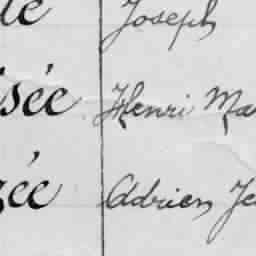 Joseph
sée Henri Ma
ée Adrien Je